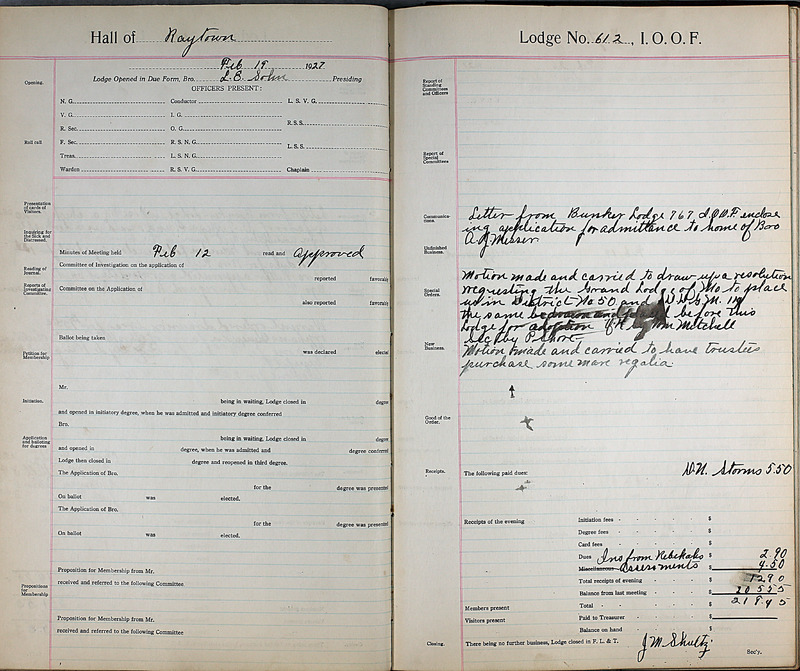 Hall of Raytown
Feb 19 1927
Lodge Opened in Due Form, Bro. L. B. Sohn Presiding
OFFICERS PRESENT:
Opening.
N. G. Conductor L. S. V. G.
V. G. I. G.
R. S. S.
R. Sec. O. G.
Roll call
F. Sec. R. S. N. G.
L. S. S.
Treas. L. S. N. G.
Warden R. S. V. G. Chaplain
Presentation of cards of Visitors.
Inquiring for the Sick and Distressed.
Minutes of Meeting held Feb 12 read and Approved
Reading of Journal.
Committee of Investigation on the application of
reported favorable
Reports of Investigating Committee.
Committee on the Application of
also reported favorable
Ballot being taken
was declared elected
Petition for Membership
Mr.
Initiation.
being in waiting, Lodge closed in degree
and opened in initiatory degree, when he was admitted and initiatory degree conferred
Bro.
Application and balloting for degrees
being in waiting, Lodge closed in degree
and opened in degree, when he was admitted and degree conferred
Lodge then closed in degree and reopened in third degree.
The Application of Bro.
for the degree was presented
On ballot was elected.
The Application of Bro.
for the degree was presented
On ballot was elected.
Proposition for Membership from Mr.
received and referred to the following Committee
Propositions for Membership
Proposition for Membership from Mr.
received and referred to the following Committee
Lodge No. 612, I. O. O. F.
Report of Standing Committees and Officers
Report of Special Committees
Communications.
Letter from Bunker Lodge 767 I.O.O.F. enclose
ing application for admittance to home of Bro
A J Messer
Unfinished Business.
Special Orders.
Motion made and carried to draw up a resolution
requesting the Grand Lodge of Mo to place
us in District No 50 and
the same before this
Lodge for adoption Wm Mitchell
Sec by P Short
New Business.
Motion made and carried to have trustees
purchase some more regalia
Good of the Order.
Receipts.
The following paid dues: D.N. Storms 5.50
Receipts of the evening Initiation fees $
Degree fees $
Card fees $
Dues Ins from Rebekahs $ 2.90
Miscellaneous Assessments $ 4.50
Total receipts of evening $ 12 90
Balance from last meeting $ 205 55
Members present Total $ 218 45
Visitors present Paid to Treasurer $
Balance on hand $
Closing. There being no further business, Lodge closed in F. L. & T. J M Shultz Sec'y.